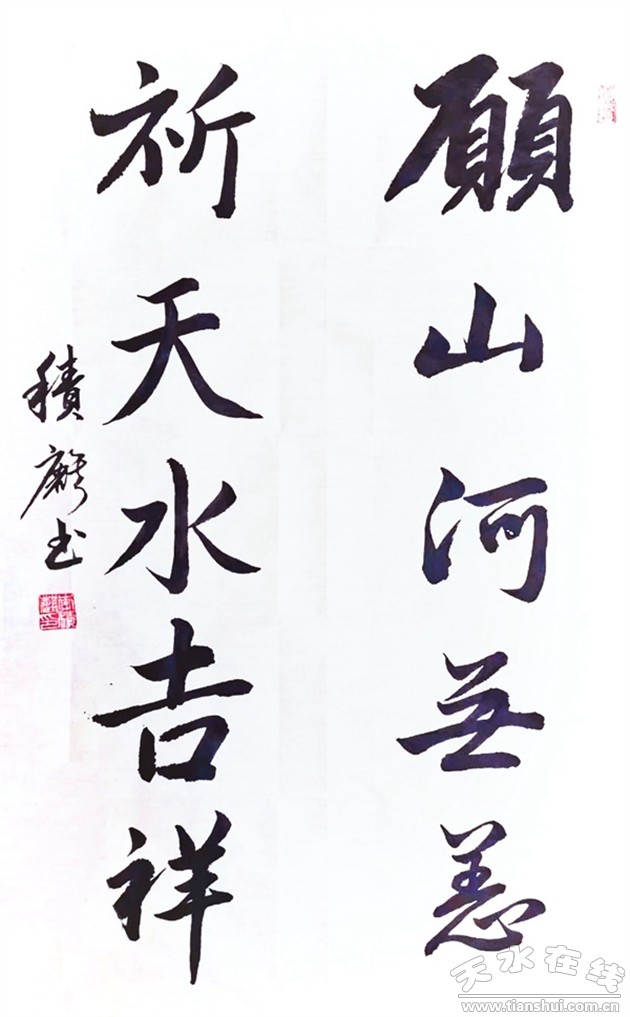 願山河無恙
祈天水吉祥
積麟书
天水在线
www.tianshui.com.cn